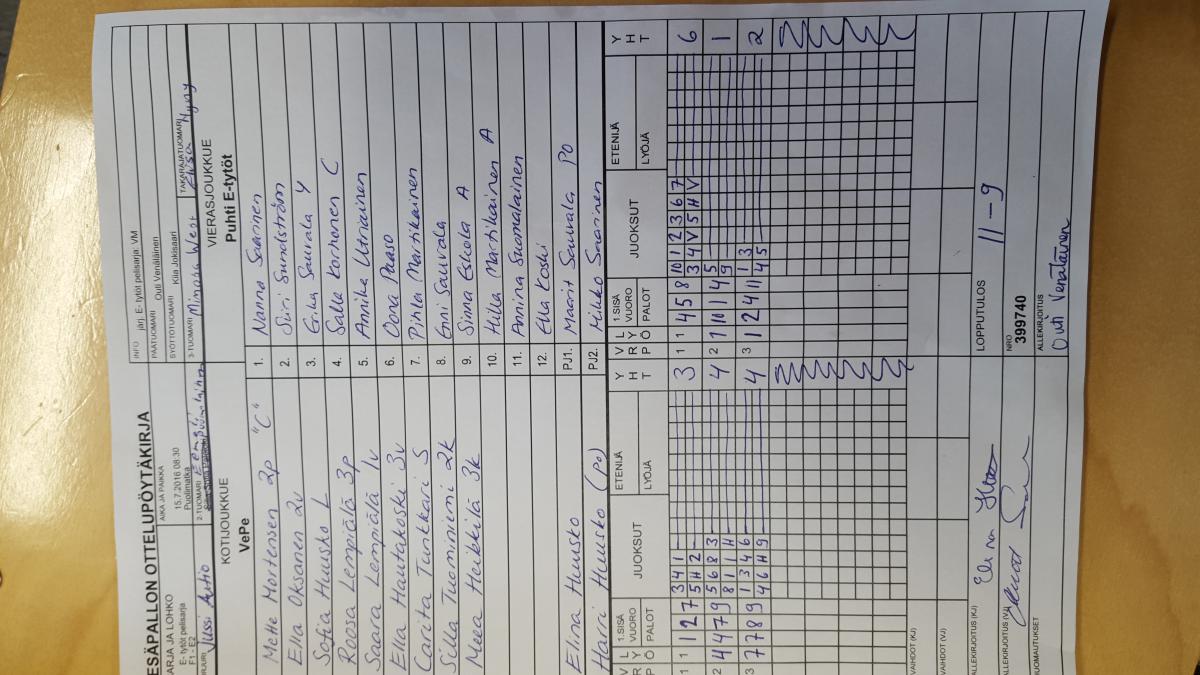 ESÄPALLON OTTELUPÖYTÄKIRJA
INFO järj. E- tytöt pelisarja: VM
ARJA JA LOHKO
E- tytöt pelisarja
F1 - E2
AIKA JA PAIKKA
15.7.2016 08:30
Puolimatka
PÄÄTUOMARI Outi Venäläinen
SYÖTTÖTUOMARI Kiia Jokisaari
Jussi Autio
2-TUOMARI
3-TUOMARI Minona West
TAKARAJATUOMARI Elisa
KOTIJOUKKUE
VePe
VIERASJOUKKUE
Puhti E-tytöt
Mette Mortensen 2p "C"
1. Nanna Saarinen
Ella Oksanen 2v
2. Siiri Sundström
Sofia Huusko L
3. Erika Sauvala Y
Roosa Lempiälä 3p
4. Salle Korhonen C
Saara Lempiälä 1v
5. Annika Utriainen
Ella Hautakoski 3v
6. Oona Paaso
Carita Tunkkari S
7. Pihla Martikainen
Silla Tuominiemi 2k
8. Enni Sauvala
Neea Heikkilä 3k
9. Sinna Eskola A
10. Hilla Martikainen A
11. Annina Suomalainen
12. Ella Koski
Elina Huusko
PJ1. Marit Sauvala PO
Harri Huusko (PO)
PJ2. Mikko Saarinen
V R P L Y Ö 1.SISÄ VUORO PALOT JUOKSUT ETENIJÄ LYÖJÄ Y H T
V R P L Y Ö 1.SISÄ VUORO PALOT JUOKSUT ETENIJÄ LYÖJÄ Y H T
1 1 1 2 7 3 4 1 3
5 H 2
1 1 4 5 8 10 1 2 3 6 7 6
3 4 V 5 H V
2 4 4 7 9 5 6 8 3 4
8 1 1 H
2 1 1 10 1 4 5 1
9
3 7 7 8 9 1 3 4 6 4
4 6 H 9
3 1 2 4 11 1 3 2
4 5
VAIHDOT (KJ)
VAIHDOT (VJ)
ALLEKIRJOITUS (KJ) Elina
LOPPUTULOS 11 - 9
ALLEKIRJOITUS (VJ)
NRO
399740
HUOMAUTUKSET
ALLEKIRJOITUS
Outi Venäläinen